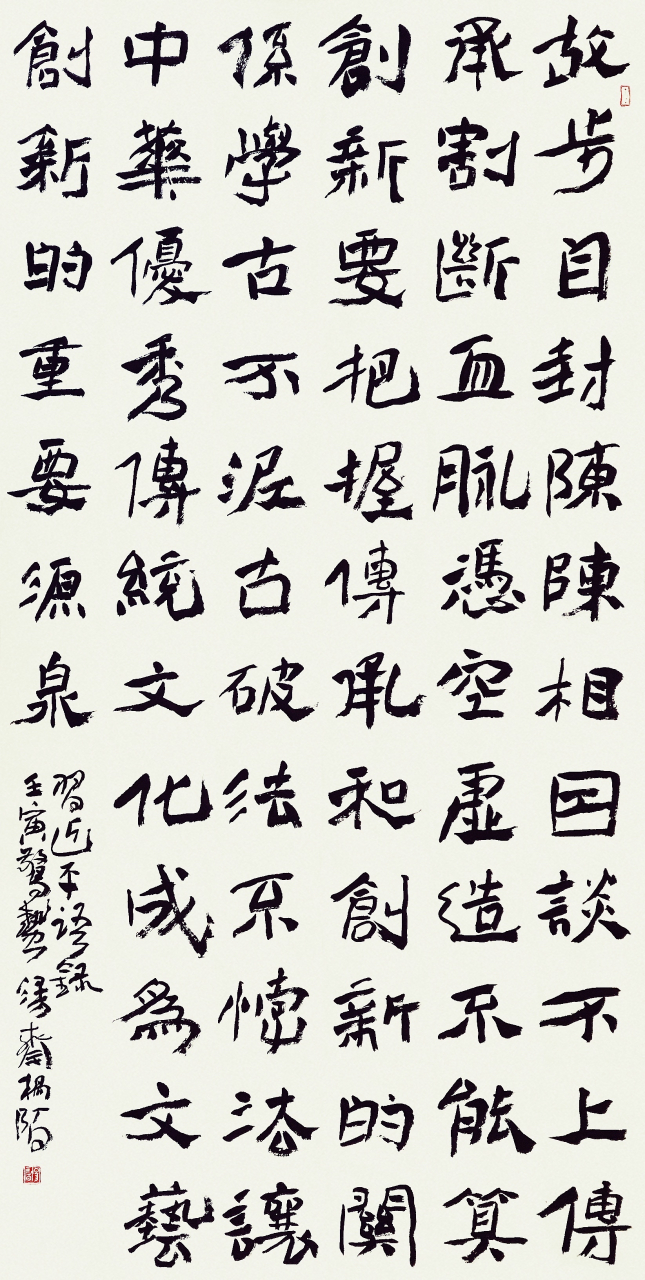 故步自封陳陳相因談不上傳
承割斷血脈憑空虛造不能算
創新要把握傳承和創新的關
係學古不泥古破法不悖法讓
中華優秀傳統文化成爲文藝
創新的重要源泉
習近平語錄
壬寅驚蟄